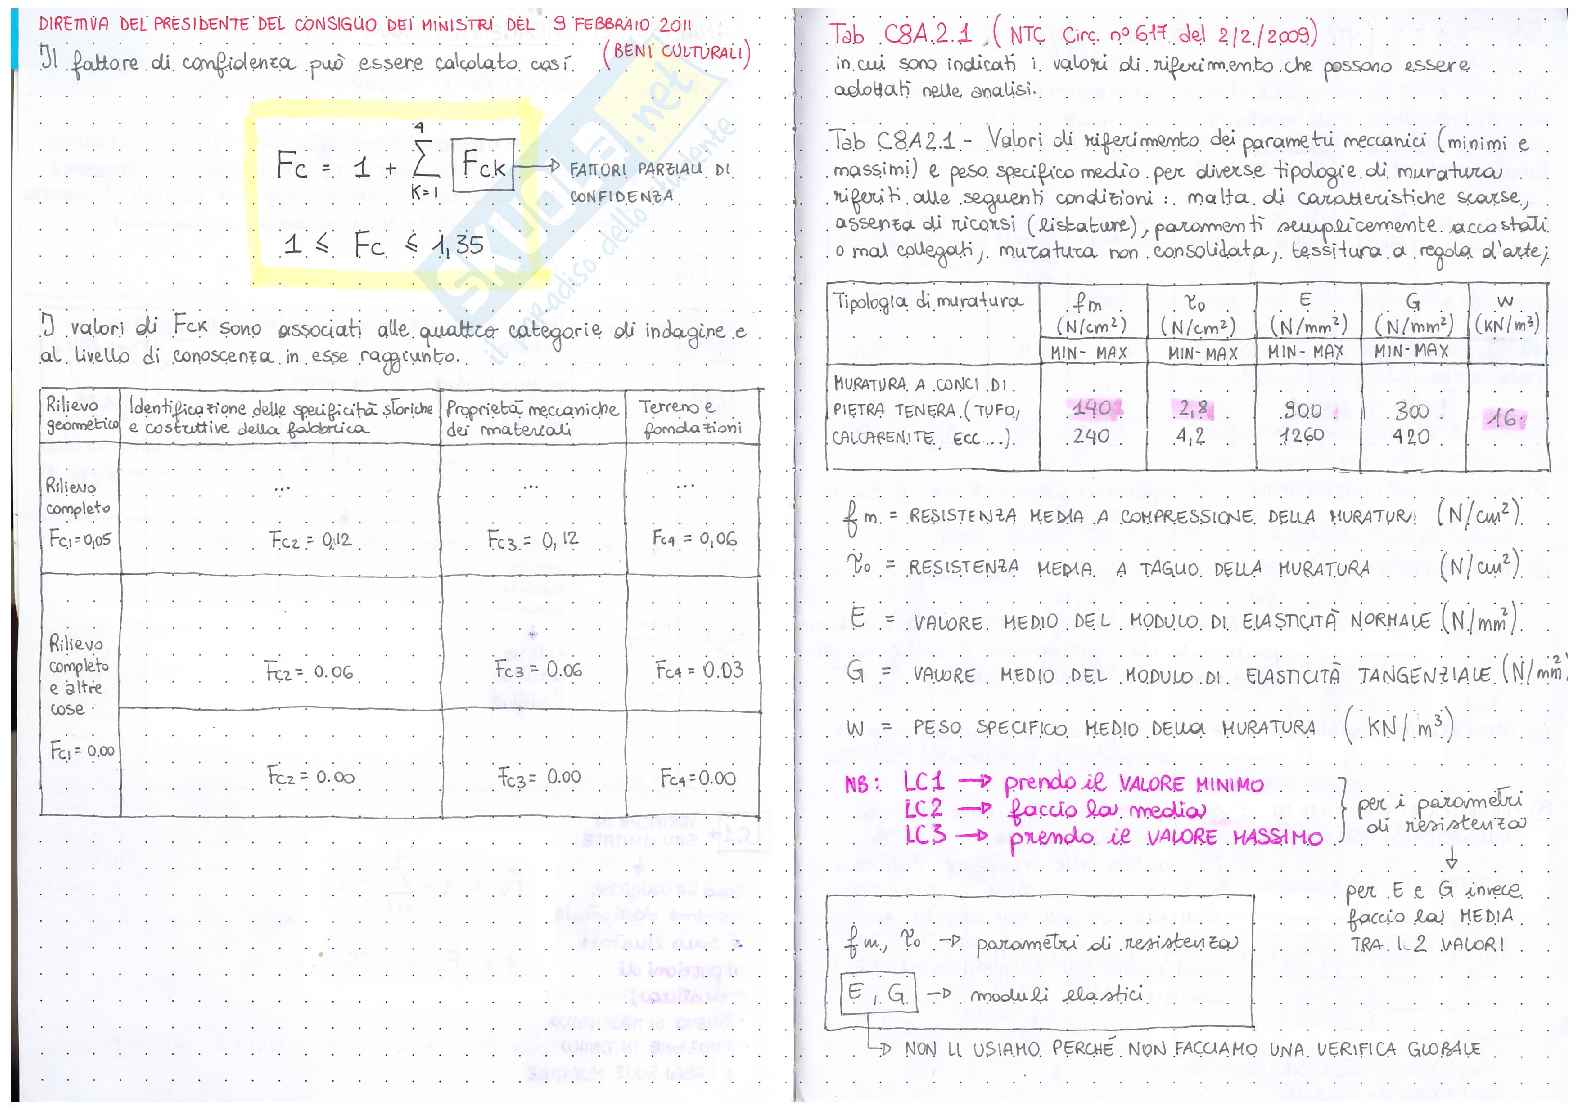 DIRETTIVA DEL PRESIDENTE DEL CONSIGLIO DEI MINISTRI DEL 9 FEBBRAIO 2011
(BENI CULTURALI)
Il fattore di confidenza può essere calcolato così.
Fc = 1 + 4 Σ K=1 Fck → FATTORI PARZIALI DI
CONFIDENZA
1 ≤ Fc ≤ 1,35
I valori di Fck sono associati alle quattro categorie di indagine e
al livello di conoscenza in esse raggiunto.
Rilievo geometrico
Identificazione delle specificità storiche
e costruttive della fabbrica
Proprietà meccaniche
dei materiali
Terreno e
fondazioni
Rilievo
completo
Fc1=0,05
... ... ...
Fc2 = 0,12 Fc3 = 0,12 Fc4 = 0,06
Rilievo
completo
e altre
cose
Fc1= 0,00
Fc2 = 0.06 Fc3 = 0.06 Fc4 = 0.03
Fc2 = 0.00 Fc3 = 0.00 Fc4=0.00
SKUOLA.net
il paradiso dello studente
Tab C8A.2.1 (NTC Circ. n°617 del 2/2/2009)
in cui sono indicati i valori di riferimento che possono essere
adottati nelle analisi.
Tab C8A2.1 - Valori di riferimento dei parametri meccanici (minimi e
massimi) e peso specifico medio per diverse tipologie di muratura
riferiti alle seguenti condizioni: malta di caratteristiche scarse,
assenza di ricorsi (listature), paramenti semplicemente accostati
o mal collegati, muratura non consolidata, tessitura a regola d'arte;
Tipologia di muratura fm τ0 E G W
(N/cm²) (N/cm²) (N/mm²) (N/mm²) (KN/m³)
MIN-MAX MIN-MAX MIN-MAX MIN-MAX
MURATURA A CONCI DI
PIETRA TENERA (TUFO, 140 2,8 900 300 16
CALCARENITE, ECC...). 240 4,2 1260 420
fm = RESISTENZA MEDIA A COMPRESSIONE DELLA MURATUR (N/cm²)
τ0 = RESISTENZA MEDIA A TAGLIO DELLA MURATURA (N/cm²)
E = VALORE MEDIO DEL MODULO DI ELASTICITÀ NORMALE (N/mm²)
G = VALORE MEDIO DEL MODULO DI ELASTICITÀ TANGENZIALE (N/mm²
W = PESO SPECIFICO MEDIO DELLA MURATURA (KN/m³)
NB: LC1 → prendo il VALORE MINIMO
LC2 → faccio la media
LC3 → prendo il VALORE MASSIMO
per i parametri
di resistenza
↓
per E e G invece
faccio la MEDIA
TRA I 2 VALORI
fm, τ0 → parametri di resistenza
E, G → moduli elastici
→ NON LI USIAMO PERCHÉ NON FACCIAMO UNA VERIFICA GLOBALE